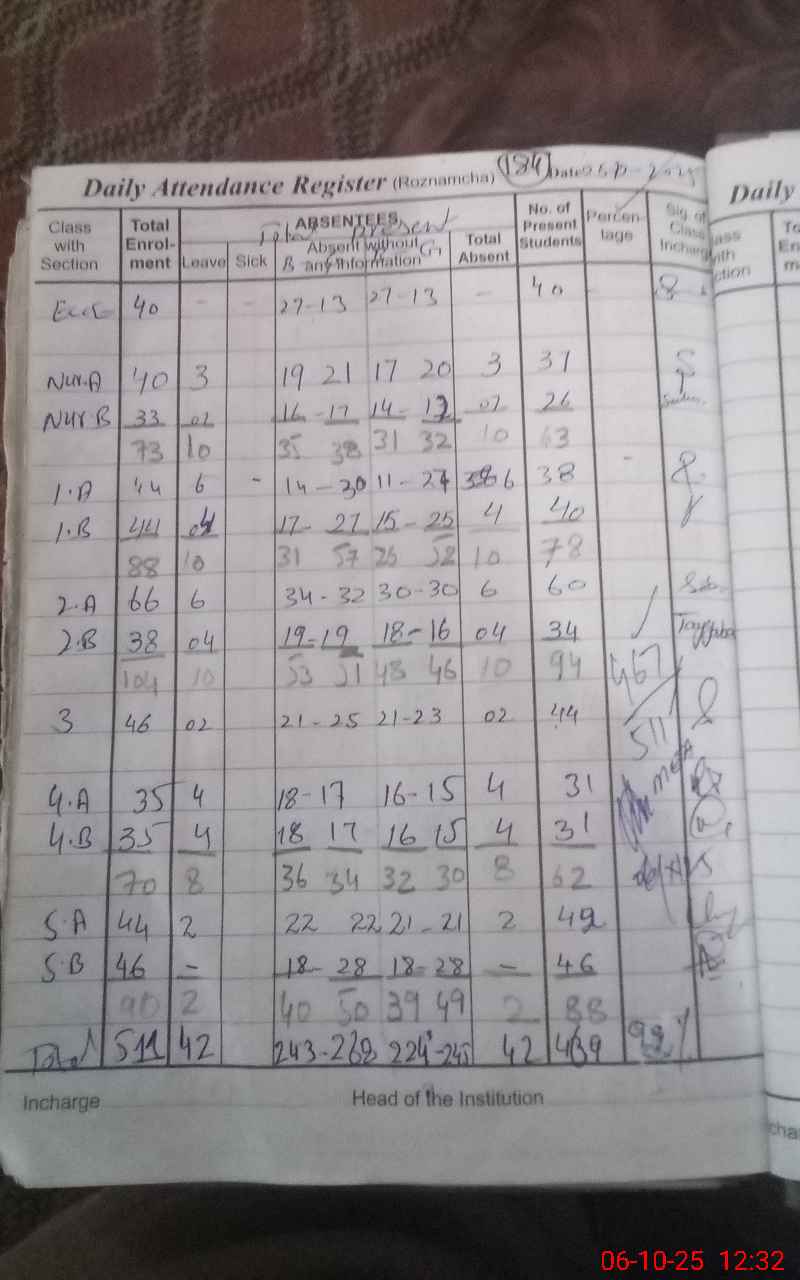 Daily Attendance Register (Roznamcha) (184) Date
Class with Section Total Enrolment ABSENTEES Leave Sick Absent without any Information Total Absent No. of Present Students Percentage Sig. of Class Incharge
Total Present
B G
40 - - 27-13 27-13 - 40
Nur.A 40 3 19 21 17 20 3 37
Nur B 33 16 - 17 14 - 12 26
73 10 35 38 31 32 10 63
1.A 44 6 - 14 - 30 11 - 27 6 38
1.B 44 04 17- 27 15 - 25 4 40
88 10 31 57 26 52 10 78
2.A 66 6 34 - 32 30-30 6 60
2.B 38 04 19-19 18-16 04 34
104 10 53 51 48 46 10 94
467
3 46 02 21-25 21-23 02 44
511
4.A 35 4 18-17 16-15 4 31
4.B 35 4 18 17 16 15 4 31
70 8 36 34 32 30 8 62
5.A 44 2 22 22 21-21 2 42
5.B 46 - 18- 28 18-28 - 46
90 2 40 50 39 49 2 88
Total 511 42 243-268 224-245 42 469
Incharge Head of the Institution
Daily
06-10-25 12:32